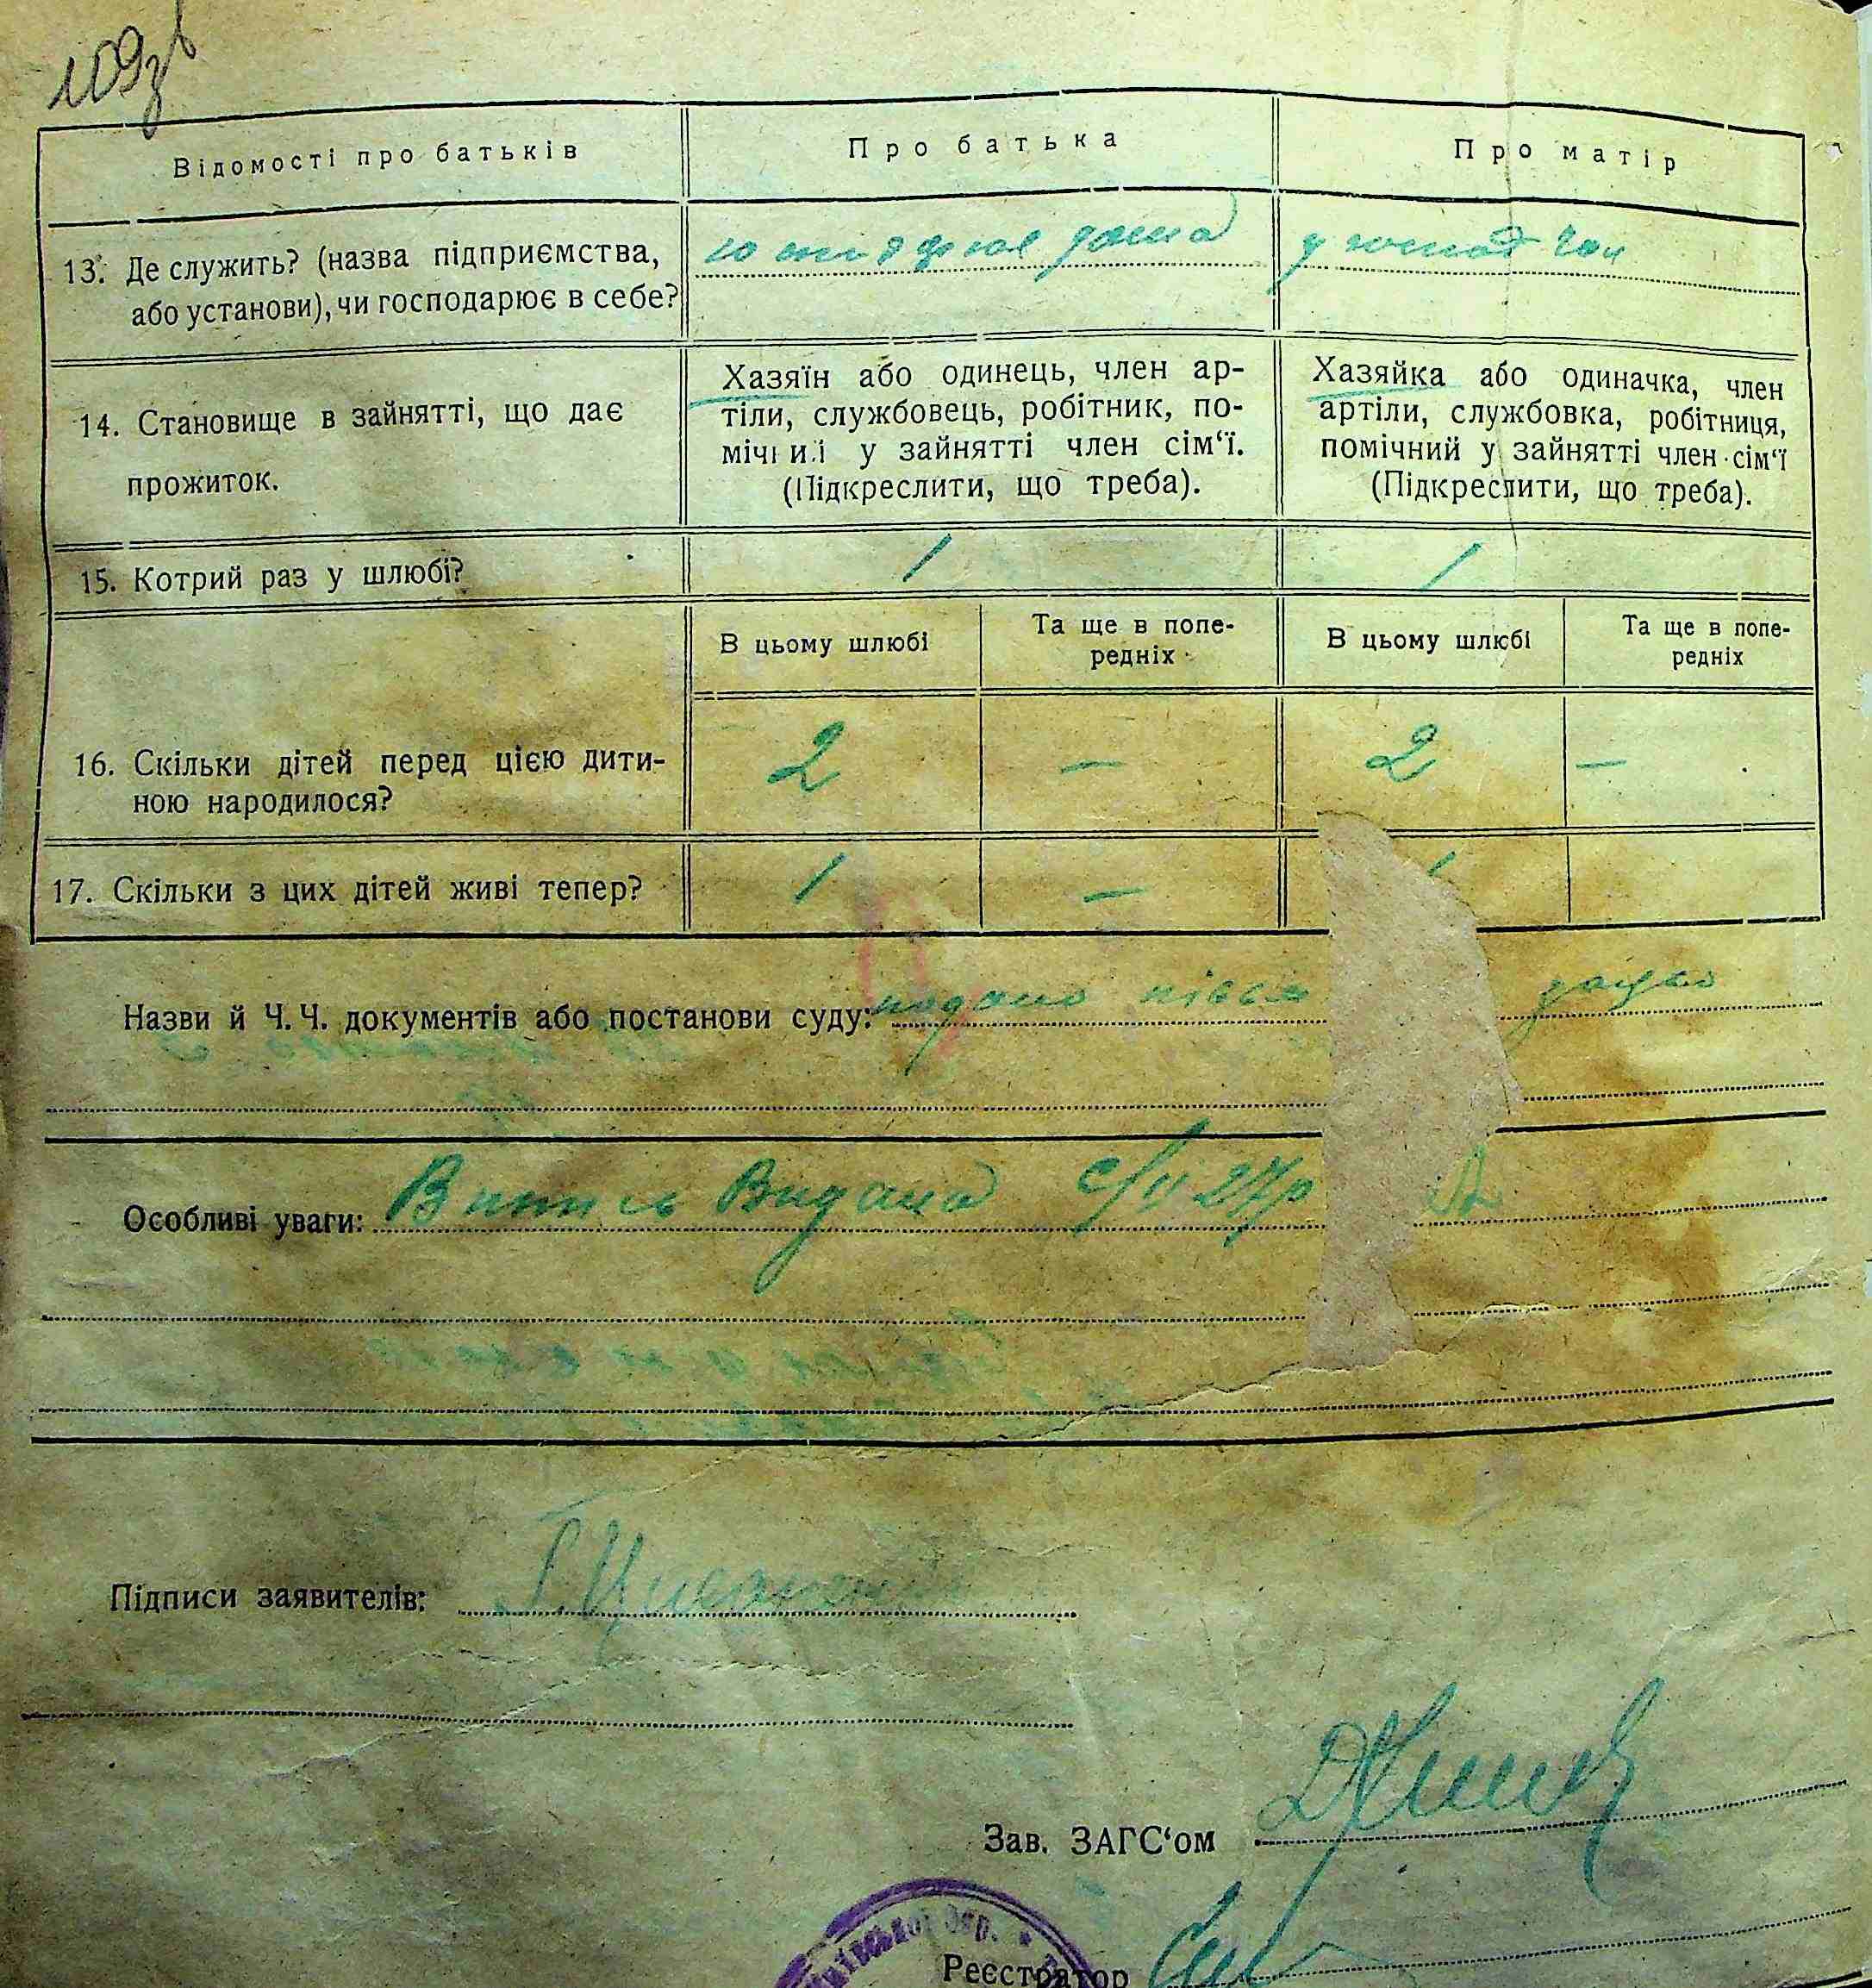 109зв
Відомості про батьків
Про батька
Про матір
13. Де служить? (назва підприємства,
або установи), чи господарює в себе?
14. Становище в зайнятті, що дає
прожиток.
Хазяїн або одинець, член ар-
тіли, службовець, робітник, по-
у зайнятті член сім‘ї.
(Підкреслити, що треба).
Хазяйка або одиначка, член
артіли, службовка, робітниця,
помічний у зайнятті член сім‘ї
(Підкреслити, що треба).
15. Котрий раз у шлюбі?
1
1
В цьому шлюбі
Та ще в попе-
редніх
В цьому шлюбі
Та ще в попе-
редніх
16. Скільки дітей перед цією дити-
ною народилося?
2 — 2 —
17. Скільки з цих дітей живі тепер?
1 —
Назви й Ч. Ч. документів або постанови суду: подано
Особливі уваги: Витпись Видана
Підписи заявителів:
Зав. ЗАГС‘ом
Реєстратор